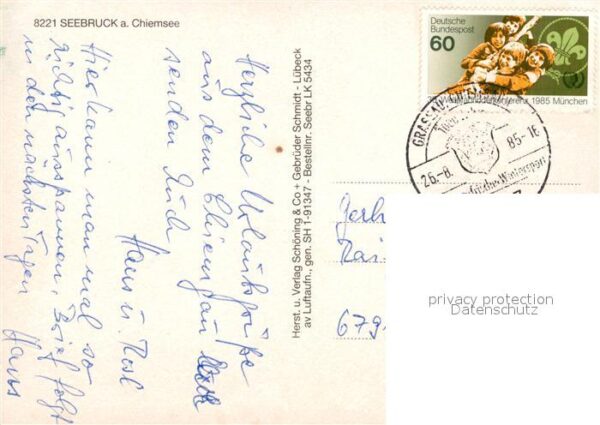 8221 SEEBRUCK a. Chiemsee
Herzliche Urlaubsgrüße
aus dem Chiemgau
senden Euch
Hans u. Rosl
Hier kann man mal so
richtig ausspannen, Brief folgt
in den nächsten Tagen
Hans
Herst. u. Verlag Schöning & Co + Gebrüder Schmidt - Lübeck
av Luftaufn., gen. SH 1-91347 - Bestellnr. Seebr LK 5434
Deutsche
Bundespost
60
1985 München
GRASSAU
26.-8.
85-16
Wintersport
Gerh
Rai
679
privacy protection
Datenschutz